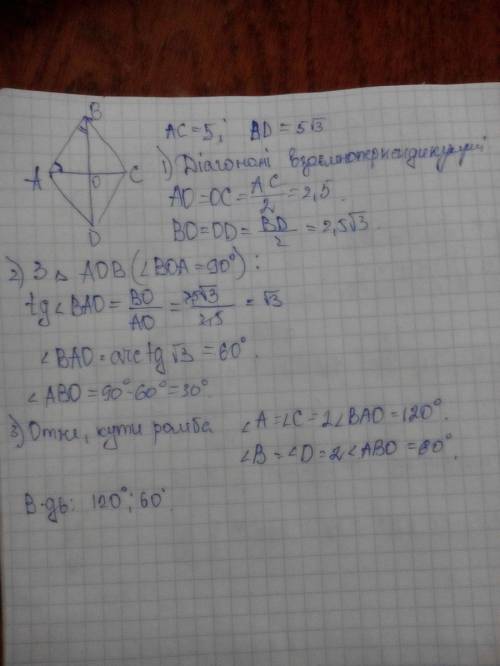 B
A O C
D
AC = 5; BD = 5√3
1) Діагоналі взаємноперпендикулярні
AO = OC = AC/2 = 2,5.
BO = OD = BD/2 = 2,5√3.
2) З △ AOB (∠BOA = 90°):
tg∠BAO = BO/AO = 2,5√3/2,5 = √3
∠BAO = arctg √3 = 60°.
∠ABO = 90° - 60° = 30°.
3) Отже, кути ромба ∠A = ∠C = 2∠BAO = 120°.
∠B = ∠D = 2∠ABO = 60°.
В-дь: 120°; 60°